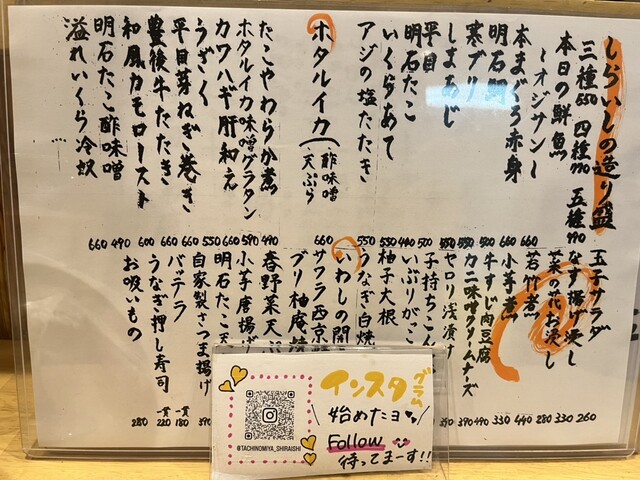 しらいしの造り盛
三種550 四種770 五種990
本日の鮮魚
～オジサン～
本まぐろ赤身
明石鯛
寒ブリ
しまあじ
平目
明石たこ
いくらあて
アジの塩たたき
ホタルイカ(酢味噌 天ぷら
たこやわらか煮
ホタルイカ味噌グラタン
カワハギ肝和え
うざく
平目芽ねぎ巻き
豊後牛たたき
和風カモロースト
明石たこ酢味噌
溢れいくら冷奴
660 660
550 550
660
490
590
660
550
660
600
600
490
660
玉子サラダ 260
なす揚げ浸し 330
菜の花お浸し 280
若竹煮 440
小芋煮 330
牛すじ肉豆腐 490
カニ味噌クリームチーズ 390
セロリ浅漬け
子持ちこん
いぶりがっこ
柚子大根
うなぎ白焼
いわしの開
サワラ西京焼
ブリ柚庵焼
春野菜天
小芋唐揚げ
明石たこ天
自家製さつま揚げ 390
バッテラ 一貫180
うなぎ押し寿司 一貫220
お吸いもの 280
インスタグラム
始めたヨ
Follow
待ってまーす!!
@TACHINOMIYA_SHIRAISHI